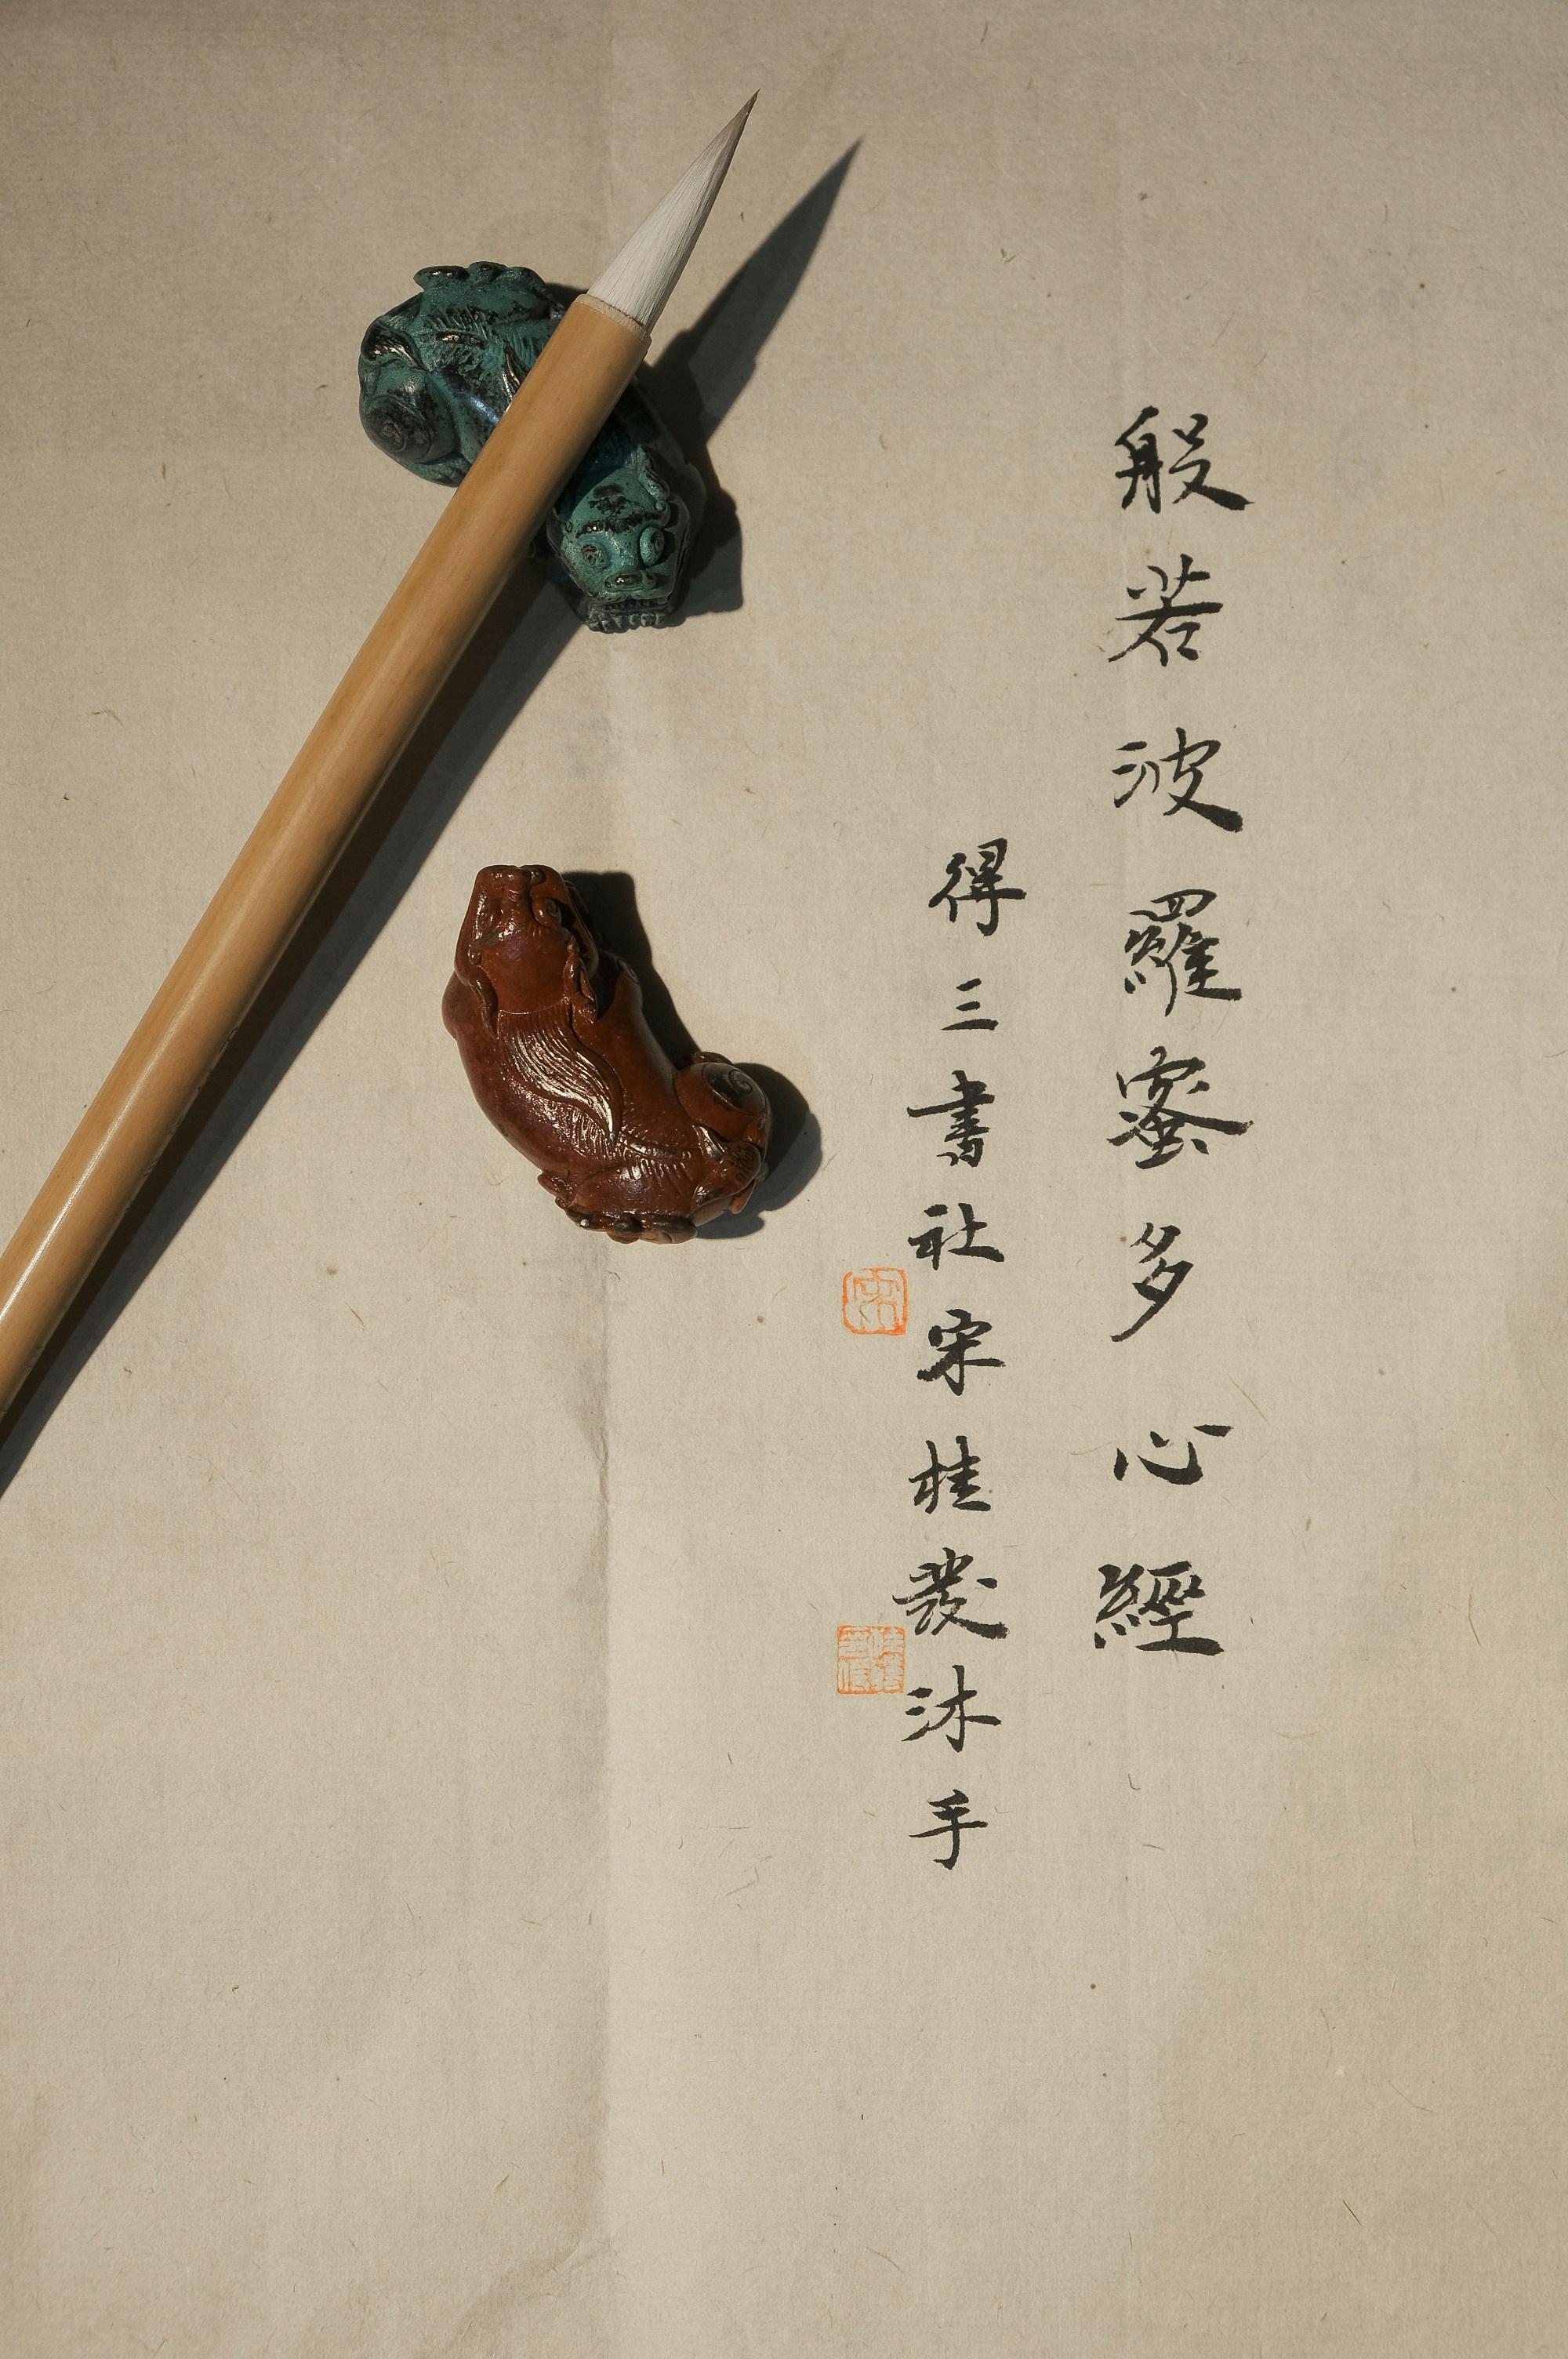 般若波羅蜜多心經
得三書社宋桂發沐手
宋